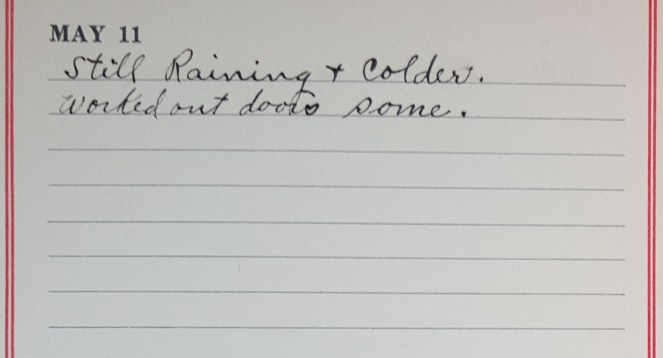 MAY 11
Still Raining + Colder.
Worked out doors some.